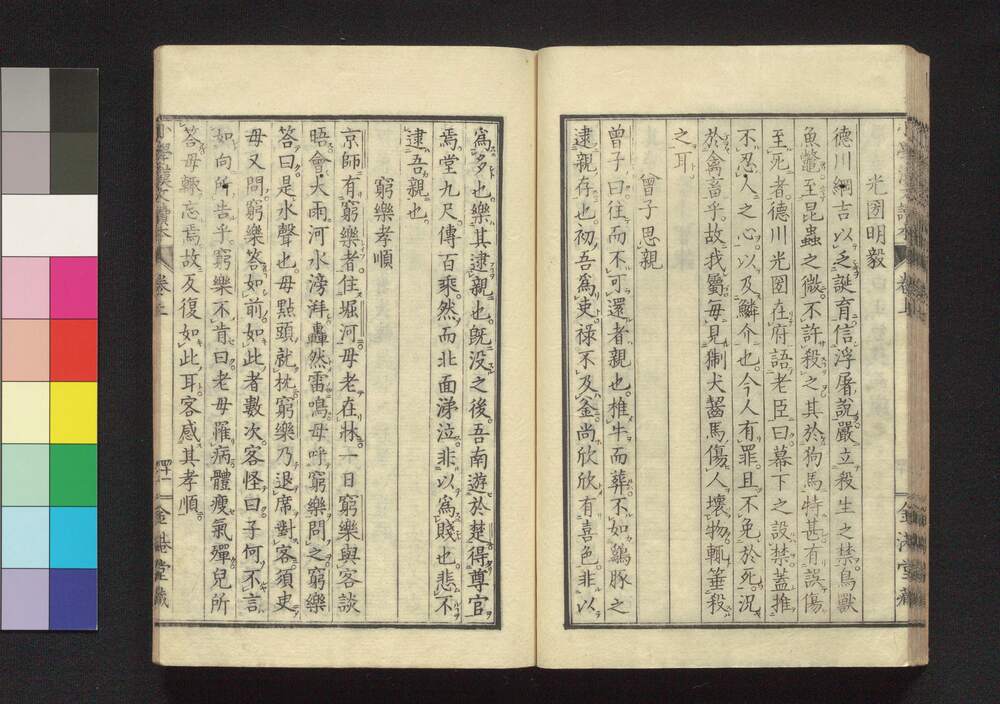 光圀明毅
德川綱吉以乏誕育信浮屠說嚴立殺生之禁鳥獸
魚鼈至昆蟲之微不許殺之其於狗馬特甚有誤傷
至死者德川光圀在府語老臣曰幕下之設禁蓋推
不忍人之心以及鱗介也今人有罪且不免於死況
於禽畜乎故我屬每見猘犬齧馬傷人壞物輒箠殺
之耳
曾子思親
曾子曰往而不可還者親也椎牛而葬不如鷄豚之
逮親存也初吾爲吏祿不及釜尚欣欣有喜色非以
爲多也樂其逮親也旣沒之後吾南遊於楚得尊官
焉堂九尺傳百乘然而北面涕泣非以爲賤也悲不
逮吾親也
窮樂孝順
京師有窮樂者住堀河母老在牀一日窮樂與客談
晤會大雨河水滂湃轟然雷鳴母呼窮樂問之窮樂
答曰是水聲也母點頭就枕窮樂乃退席對客須臾
母又問窮樂答如前如此者數次客怪曰子何不言
如向所告乎窮樂不肯曰老母罹病體瘦氣殫兒所
答母輒忘焉故反復如此耳客感其孝順
小學漢文讀本
卷上
四十一
金港堂藏